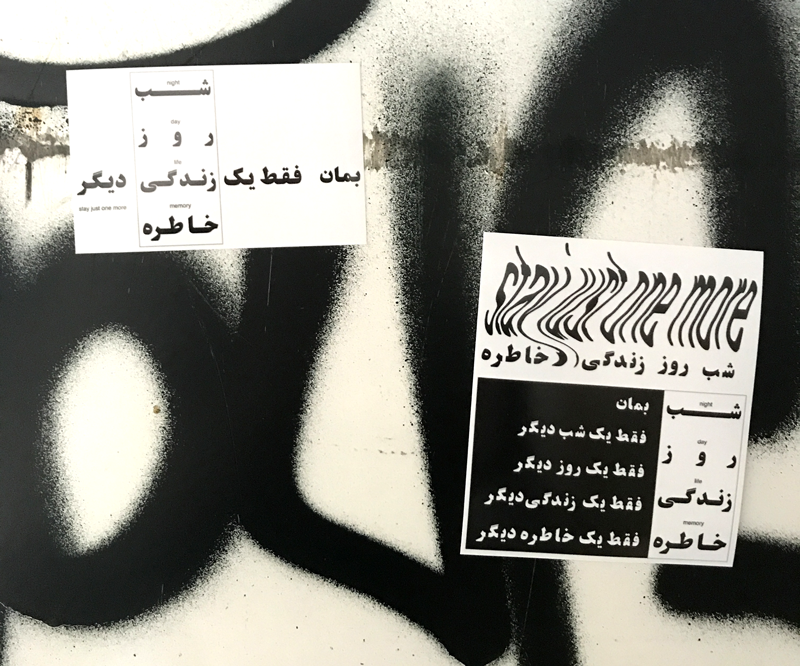 night
شب
day
روز
life
بمان فقط یک زندگی دیگر
stay just one more
memory
خاطره
stay just one more
شب روز زندگی خاطره
بمان
فقط یک شب دیگر
فقط یک روز دیگر
فقط یک زندگی دیگر
فقط یک خاطره دیگر
night
شب
day
روز
life
زندگی
memory
خاطره